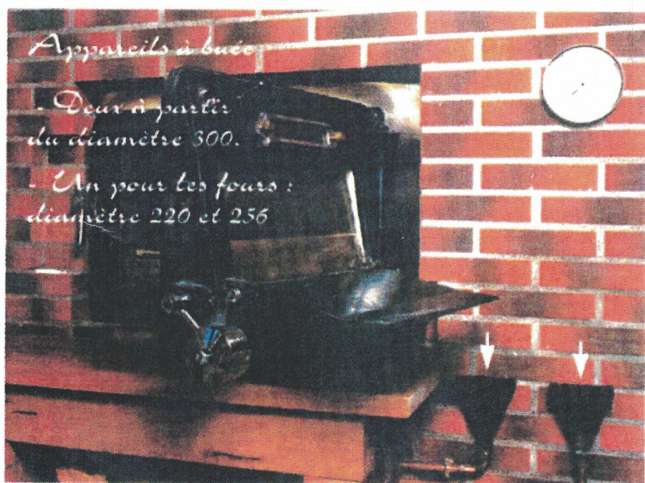 Appareils à buée
- Deux à partir
du diamètre 300.
- Un pour les fours :
diamètre 220 et 256